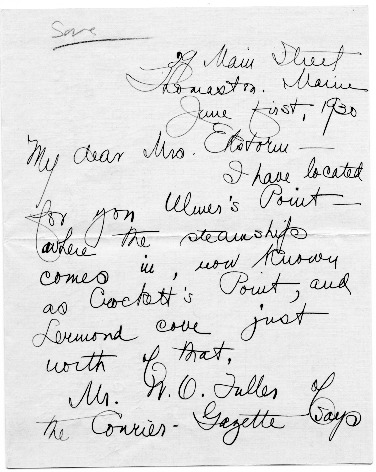 Save
29 Main Street
Thomaston. Maine
June first, 1930
My dear Mrs. Eckstorm —
I have located
for you Ulmer's Point —
where the steamships
comes in, now known
as Crockett's Point, and
Lermond cove just
north of that.
Mr. W. O. Fuller of
the Courier-Gazette says